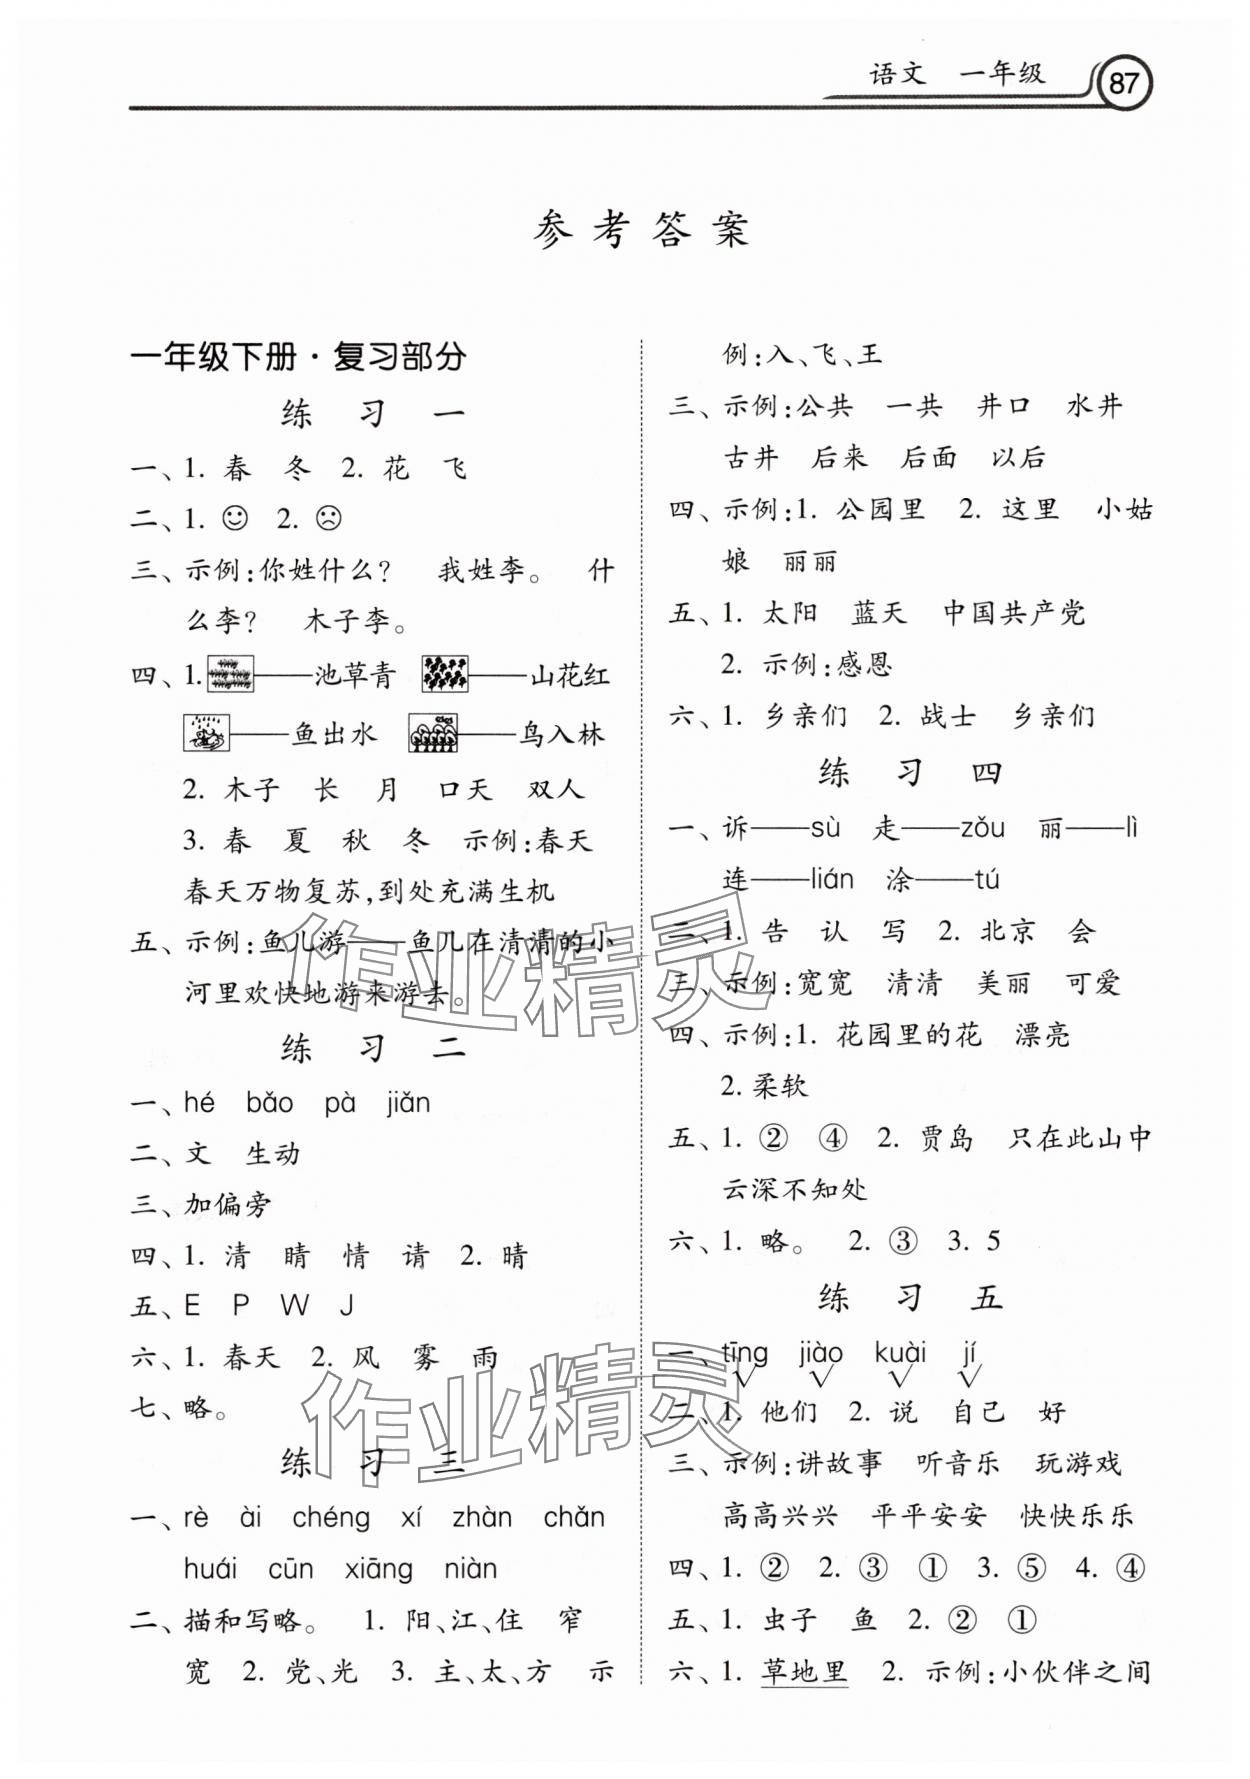 语文 一年级 87
参考答案
一年级下册·复习部分
练 习 一
一、1. 春 冬 2. 花 飞
二、1. ☺ 2. ☹
三、示例:你姓什么? 我姓李。 什
么李? 木子李。
四、1. ——池草青 ——山花红
——鱼出水 ——鸟入林
2. 木子 长 月 口天 双人
3. 春 夏 秋 冬 示例:春天
春天万物复苏,到处充满生机
五、示例:鱼儿游——鱼儿在清清的小
河里欢快地游来游去。
练 习 二
一、hé bǎo pà jiǎn
二、文 生动
三、加偏旁
四、1. 清 睛 情 请 2. 晴
五、E P W J
六、1. 春天 2. 风 雾 雨
七、略。
练 习 三
一、rè ài chéng xí zhàn chǎn
huái cūn xiāng niàn
二、描和写略。 1. 阳、江、住 窄
宽 2. 党、光 3. 主、太、方 示
例:入、飞、王
三、示例:公共 一共 井口 水井
古井 后来 后面 以后
四、示例:1. 公园里 2. 这里 小姑
娘 丽丽
五、1. 太阳 蓝天 中国共产党
2. 示例:感恩
六、1. 乡亲们 2. 战士 乡亲们
练 习 四
一、诉——sù 走——zǒu 丽——lì
连——lián 涂——tú
二、1. 告 认 写 2. 北京 会
三、示例:宽宽 清清 美丽 可爱
四、示例:1. 花园里的花 漂亮
2. 柔软
五、1. ② ④ 2. 贾岛 只在此山中
云深不知处
六、1. 略。 2. ③ 3. 5
练 习 五
一、tīng√ jiào√ kuài√ jí√
二、1. 他们 2. 说 自己 好
三、示例:讲故事 听音乐 玩游戏
高高兴兴 平平安安 快快乐乐
四、1. ② 2. ③ ① 3. ⑤ 4. ④
五、1. 虫子 鱼 2. ② ①
六、1. 草地里 2. 示例:小伙伴之间
作业精灵
作业精灵